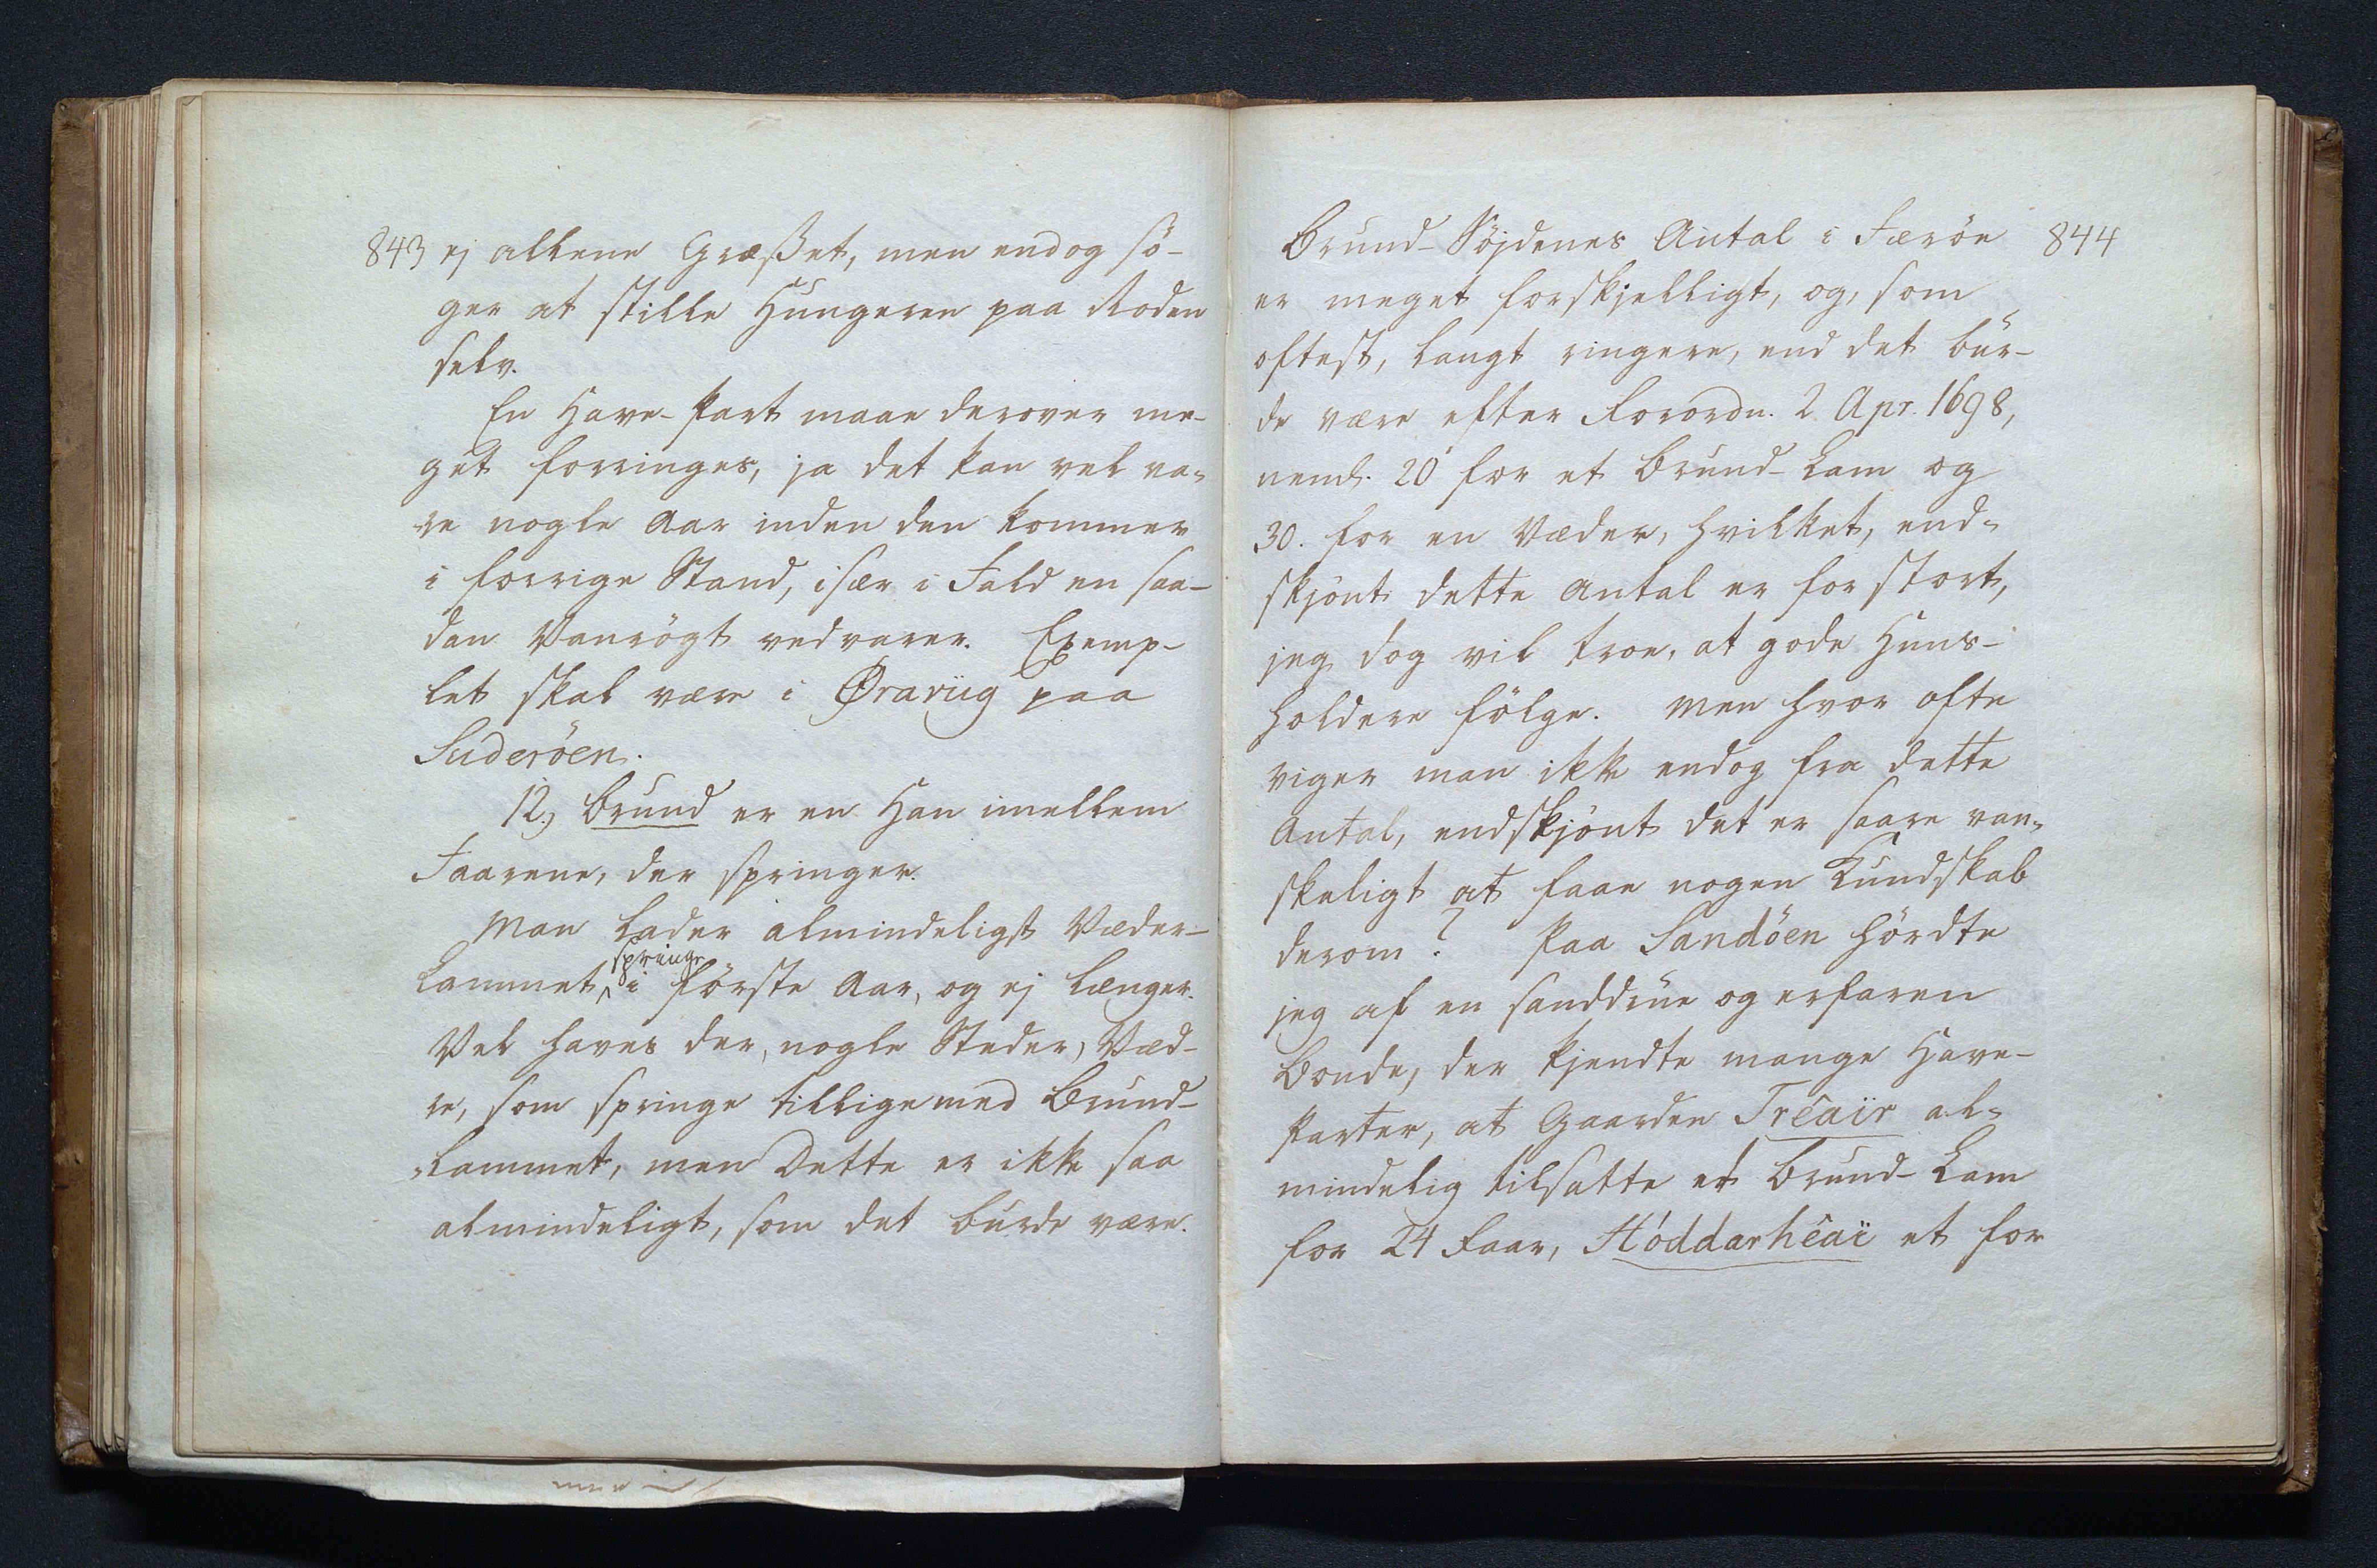 843 ej allene Græsset, men endog sö-
ger at stille Hungeren paa Roden
selv.
En Have-Part maae derover me-
get forringes, ja det kan vel va-
re nogle Aar inden den kommer
i forrige Stand, især i Fald en saa-
dan Vanrögt vedvarer. Exemp-
let skal være i Øraviig paa
Suderöen.
12.) Brund er en Han imellem
Faarene, der springer.
Man lader almindeligst Væder-
springe
Lammet i förste Aar, og ej længer.
Vel haves der, nogle Steder, Væd-
re, som springe tilligemed Brund-
-Lammet, men Dette er ikke saa
almindeligt, som det burde være.
Brund-Söjdenes Antal i Færöe 844
er meget forskjelligt, og, som
oftest, langt ringere, end det bur-
de være efter Forordn. 2 Apr. 1698,
neml. 20 for et Brund-Lam og
30. for en Væder, hvilket, end-
skjönt dette Antal er for stort,
jeg dog vil troe, at gode Huus-
holdere fölge. Men hvor ofte
viger man ikke endog fra dette
Antal, endskjönt det er saare van-
skeligt at faae nogen Kundskab
derom? Paa Sandöen hördte
jeg af en sanddrue og erfaren
Bonde, der kjendte mange Have-
Parter, at Gaarden Trêaïr al-
mindelig tilsatte et Brund-Lam
for 24 Faar, Hóddarhêaï et for